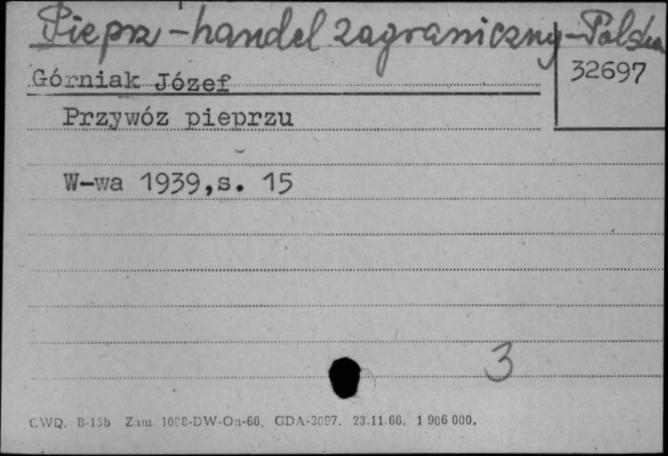 Pieprz - handel zagraniczny - Polska
32697
Górniak Józef
Przywóz pieprzu
W-wa 1939,s. 15
3
CWD. B-15b Zam. 1008-DW-On-66. GDA-3697. 23.11.66. 1 906 000.